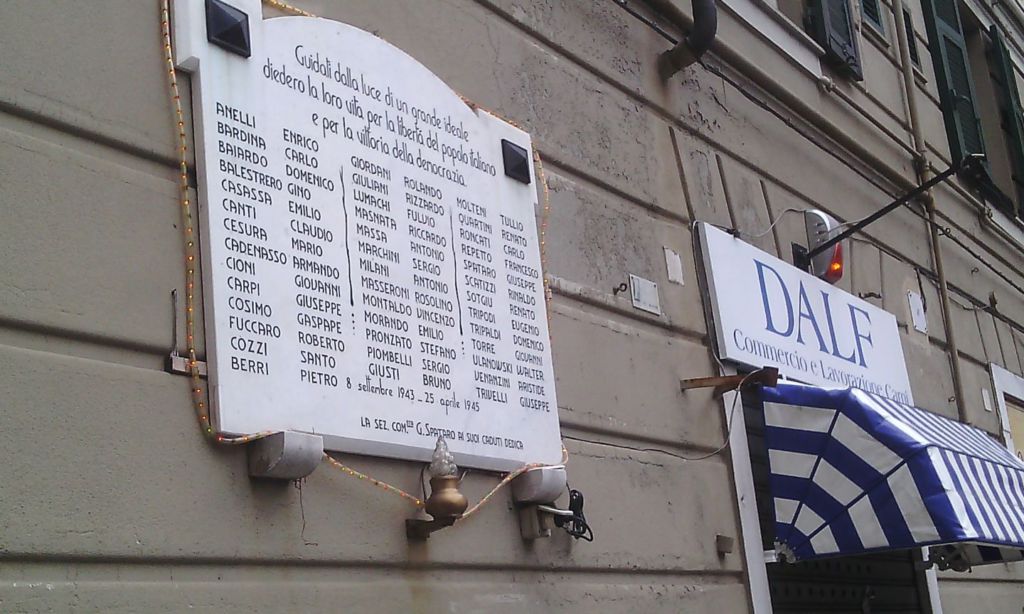 Guidati dalla luce di un grande ideale
diedero la loro vita per la libertà del popolo italiano
e per la vittoria della democrazia.
ANELLI ENRICO
BARDINA CARLO
BAIARDO DOMENICO
BALESTRERO GINO
CASASSA EMILIO
CANTI CLAUDIO
CESURA MARIO
CADENASSO ARMANDO
CIONI GIOVANNI
CARPI GIUSEPPE
COSIMO GASPARE
FUCCARO ROBERTO
COZZI SANTO
BERRI PIETRO
GIORDANI ROLANDO
GIULIANI RIZZARDO
LUMACHI FULVIO
MASNATA RICCARDO
MASSA ANTONIO
MARCHINI SERGIO
MILANI ANTONIO
MASSERONI ROSOLINO
MONTALDO VINCENZO
MORANDO EMILIO
PRONZATO STEFANO
PIOMBELLI SERGIO
GIUSTI BRUNO
MOLTENI TULLIO
QUARTINI RENATO
RONCATI CARLO
REPETTO FRANCESCO
SPATARO GIUSEPPE
SCATIZZI RINALDO
SOTGIU RENATO
TRIPODI EUGENIO
TRIPALDI DOMENICO
TORRE GIOVANNI
ULANOWSKI WALTER
VENANZINI ARISTIDE
TRIVELLI GIUSEPPE
8 settembre 1943 - 25 aprile 1945
LA SEZ. COM.STA G. SPATARO AI SUOI CADUTI DEDICA
DALF
Commercio e Lavorazione Carni